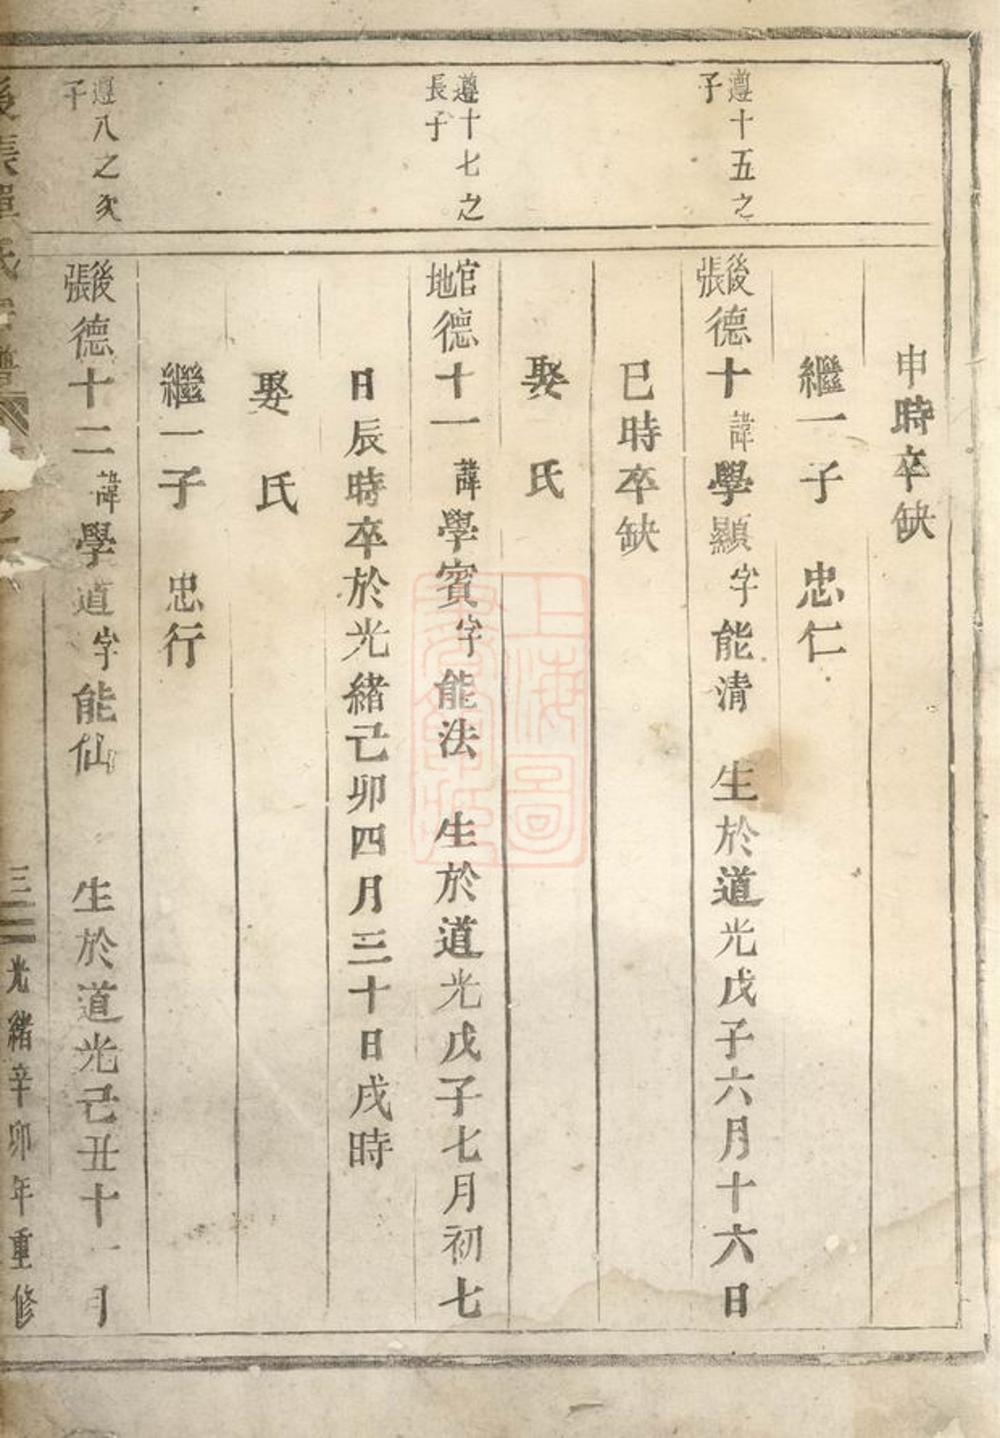 申時卒缺
繼一子 忠仁
遵十五之子
後張德十諱學顯字能清 生於道光戊子六月十六日
巳時卒缺
娶 氏
遵十七之長子
官地德十一諱學賓字能法 生於道光戊子七月初七
日辰時卒於光緒己卯四月三十日戌時
娶 氏
繼一子 忠行
遵八之次子
後張德十二諱學道字能仙 生於道光己丑十一月
三 光緒辛卯年重修
上海圖